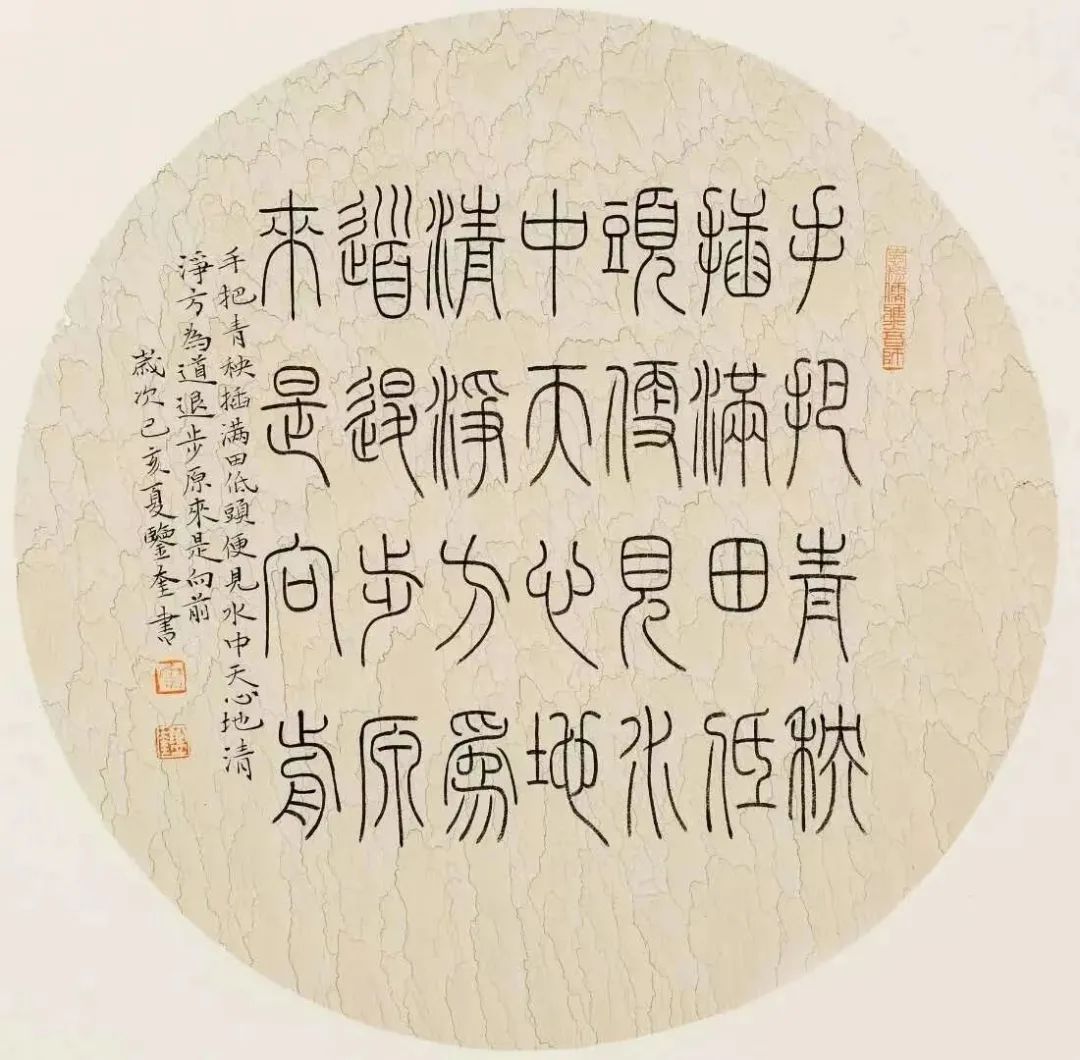 手把青秧
插滿田低
頭便見水
中天心地
清淨方爲
道退步原
來是向歬
手把青秧插满田低頭便見水中天心地清
淨方為道退步原來是向前
歲次己亥夏鑒奎書